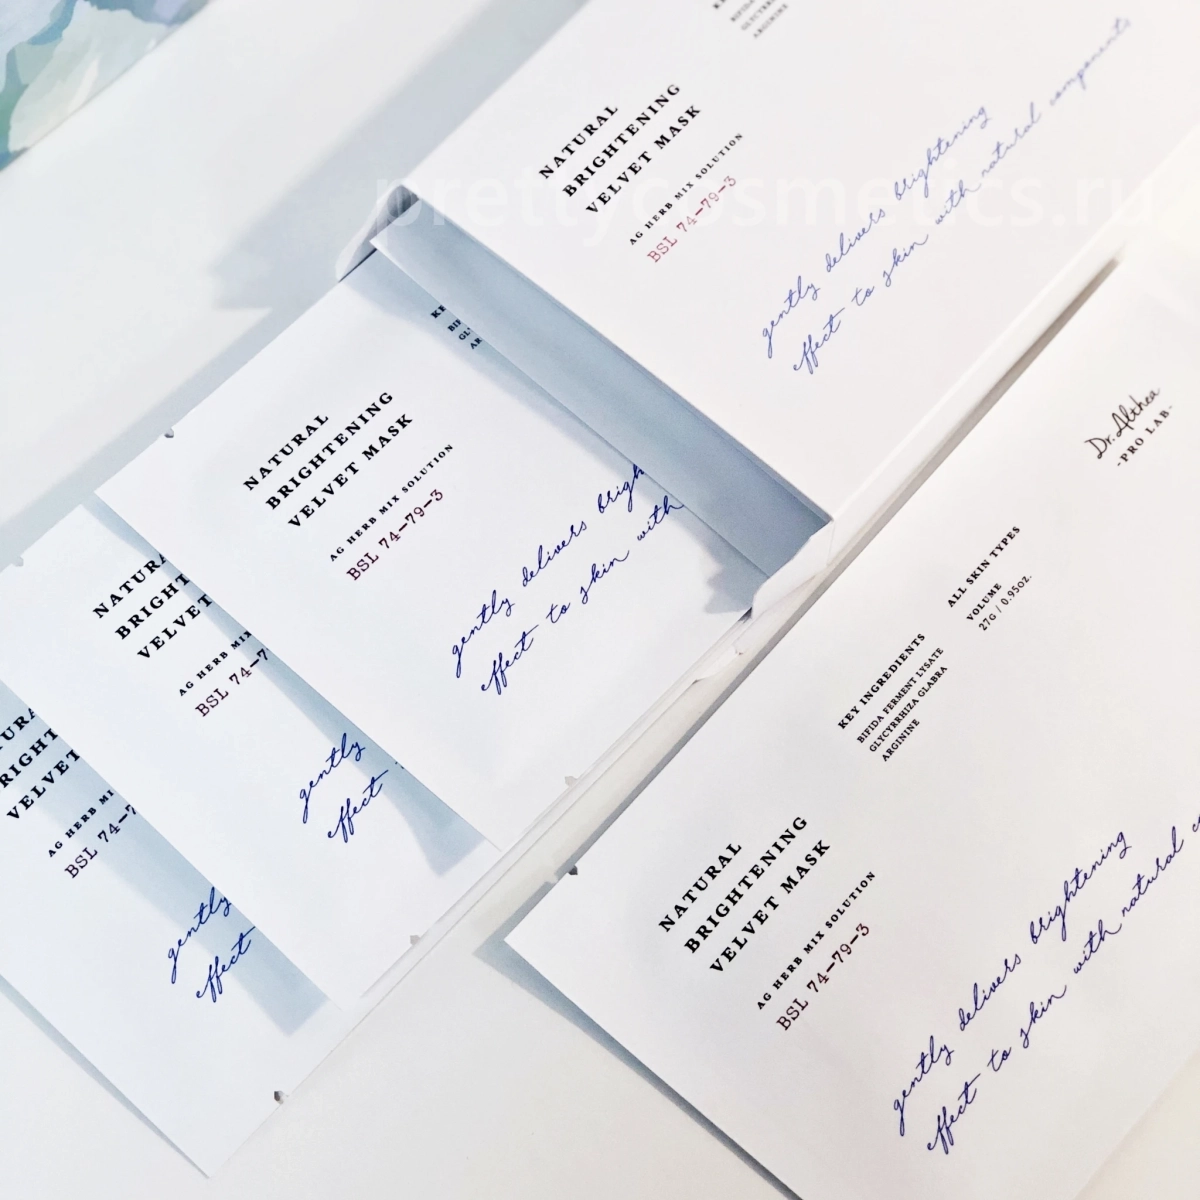 BIFIDA
GLYCYRRH
ARGININE
NATURAL
BRIGHTENING
VELVET MASK
AG HERB MIX SOLUTION
BSL 74-79-3
gently delivers brightening
effect to skin with natural components
prettycosmetics.ru
KE
BIF
GL
AR
NATURAL
BRIGHTENING
VELVET MASK
AG HERB MIX SOLUTION
BSL 74-79-3
gently delivers brigh
effect to skin with
NATURA
BRIGHT
VELVET
AG HERB MIX
BSL 74-7
gently
effect
TURA
RIGHT
VELVET
AG HERB MI
BSL 74-7
gently
effect
Dr.Althea
-PRO LAB-
ALL SKIN TYPES
VOLUME
27G / 0.95OZ.
KEY INGREDIENTS
BIFIDA FERMENT LYSATE
GLYCYRRHIZA GLABRA
ARGININE
NATURAL
BRIGHTENING
VELVET MASK
AG HERB MIX SOLUTION
BSL 74-79-3
gently delivers brightening
effect to skin with natural co